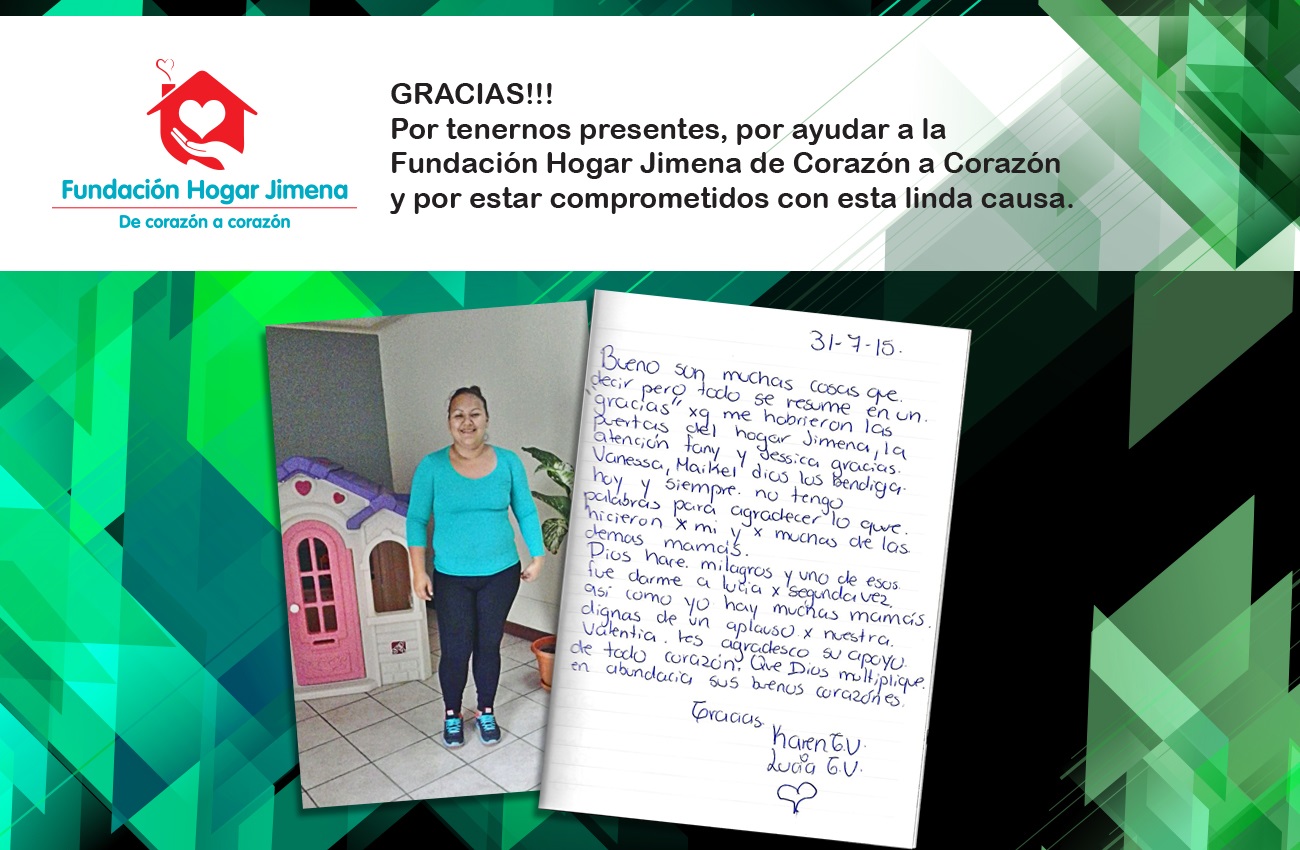 Fundación Hogar Jimena
De corazón a corazón
GRACIAS!!!
Por tenernos presentes, por ayudar a la
Fundación Hogar Jimena de Corazón a Corazón
y por estar comprometidos con esta linda causa.
31-7-15.
Bueno son muchas cosas que.
decir pero todo se resume en un.
"gracias" xq me habrieron las
puertas del hogar Jimena, la
atención fany y Jessica gracias.
Vanessa, Maikel dios los Bendiga.
hoy y siempre. no tengo
palabras para agradecer lo que.
hicieron x mi y x muchas de las
demas mamás.
Dios hace. milagros y uno de esos
fue darme a lucia x segunda vez.
así como yo hay muchas mamás.
dignas de un aplauso x nuestra.
Valentia. les agradesco su apoyo.
de todo corazón. Que Dios multiplique.
en abundacia sus buenos corazónes.
Gracias
Karen G.V.
Lucia G.V.